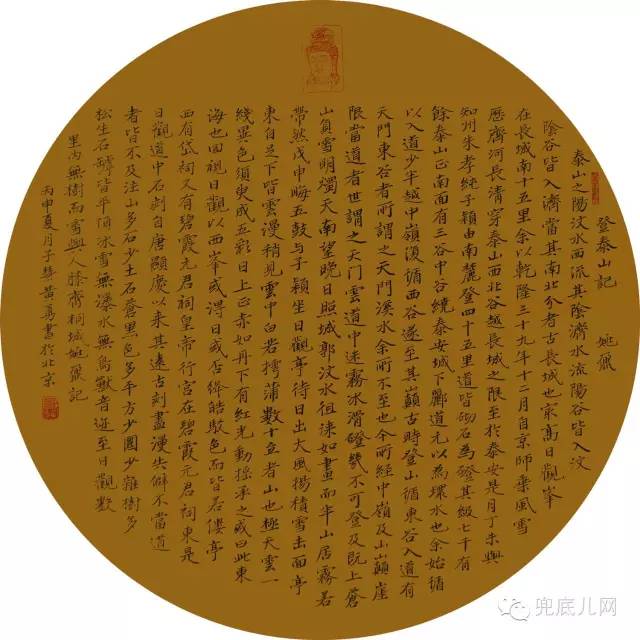 登泰山記 姚鼐
泰山之陽汶水西流其陰濟水流陽谷皆入汶
陰谷皆入濟當其南北分者古長城也最高日觀峯
在長城南十五里余以乾隆三十九年十二月自京師乘風雪
歷齊河長清穿泰山西北谷越長城之限至於泰安是月丁未與
知州朱孝純子穎由南麓登四十五里道皆砌石為磴其級七千有
餘泰山正南面有三谷中谷繞泰安城下酈道元以為環水也余始循
以入道少半越中嶺復循西谷遂至其巔古時登山循東谷入道有
天門東谷者所謂之天門溪水余所不至也今所經中嶺及山巔崖
限當道者世謂之天门雲道中迷霧冰滑磴幾不可登及既上蒼
山負雪明燭天南望晚日照城郭汶水徂徠如畫而半山居霧若
帶然戊申晦五鼓与子穎坐日觀亭待日出大風揚積雪击面亭
東自足下皆雲漫稍見雲中白若摴蒲數十立者山也極天雲一
綫異色須臾成五彩日上正赤如丹下有紅光動搖承之或曰此東
海也回視日觀以西峯或得日或否絳皓駁色而皆若僂亭
西有岱祠又有碧霞元君祠皇帝行宮在碧霞元君祠東是
日觀道中石刻自唐顯慶以來其遠古刻盡漫失僻不當道
者皆不及往山多石少土石蒼黑色多平方少圜少雜樹多
松生石罅皆平頂冰雪無瀑水無鳥獸音迹至日觀數
里內無樹而雪與人膝齊桐城姚鼐記
丙申夏月子黃勇書於北京
兜底儿网